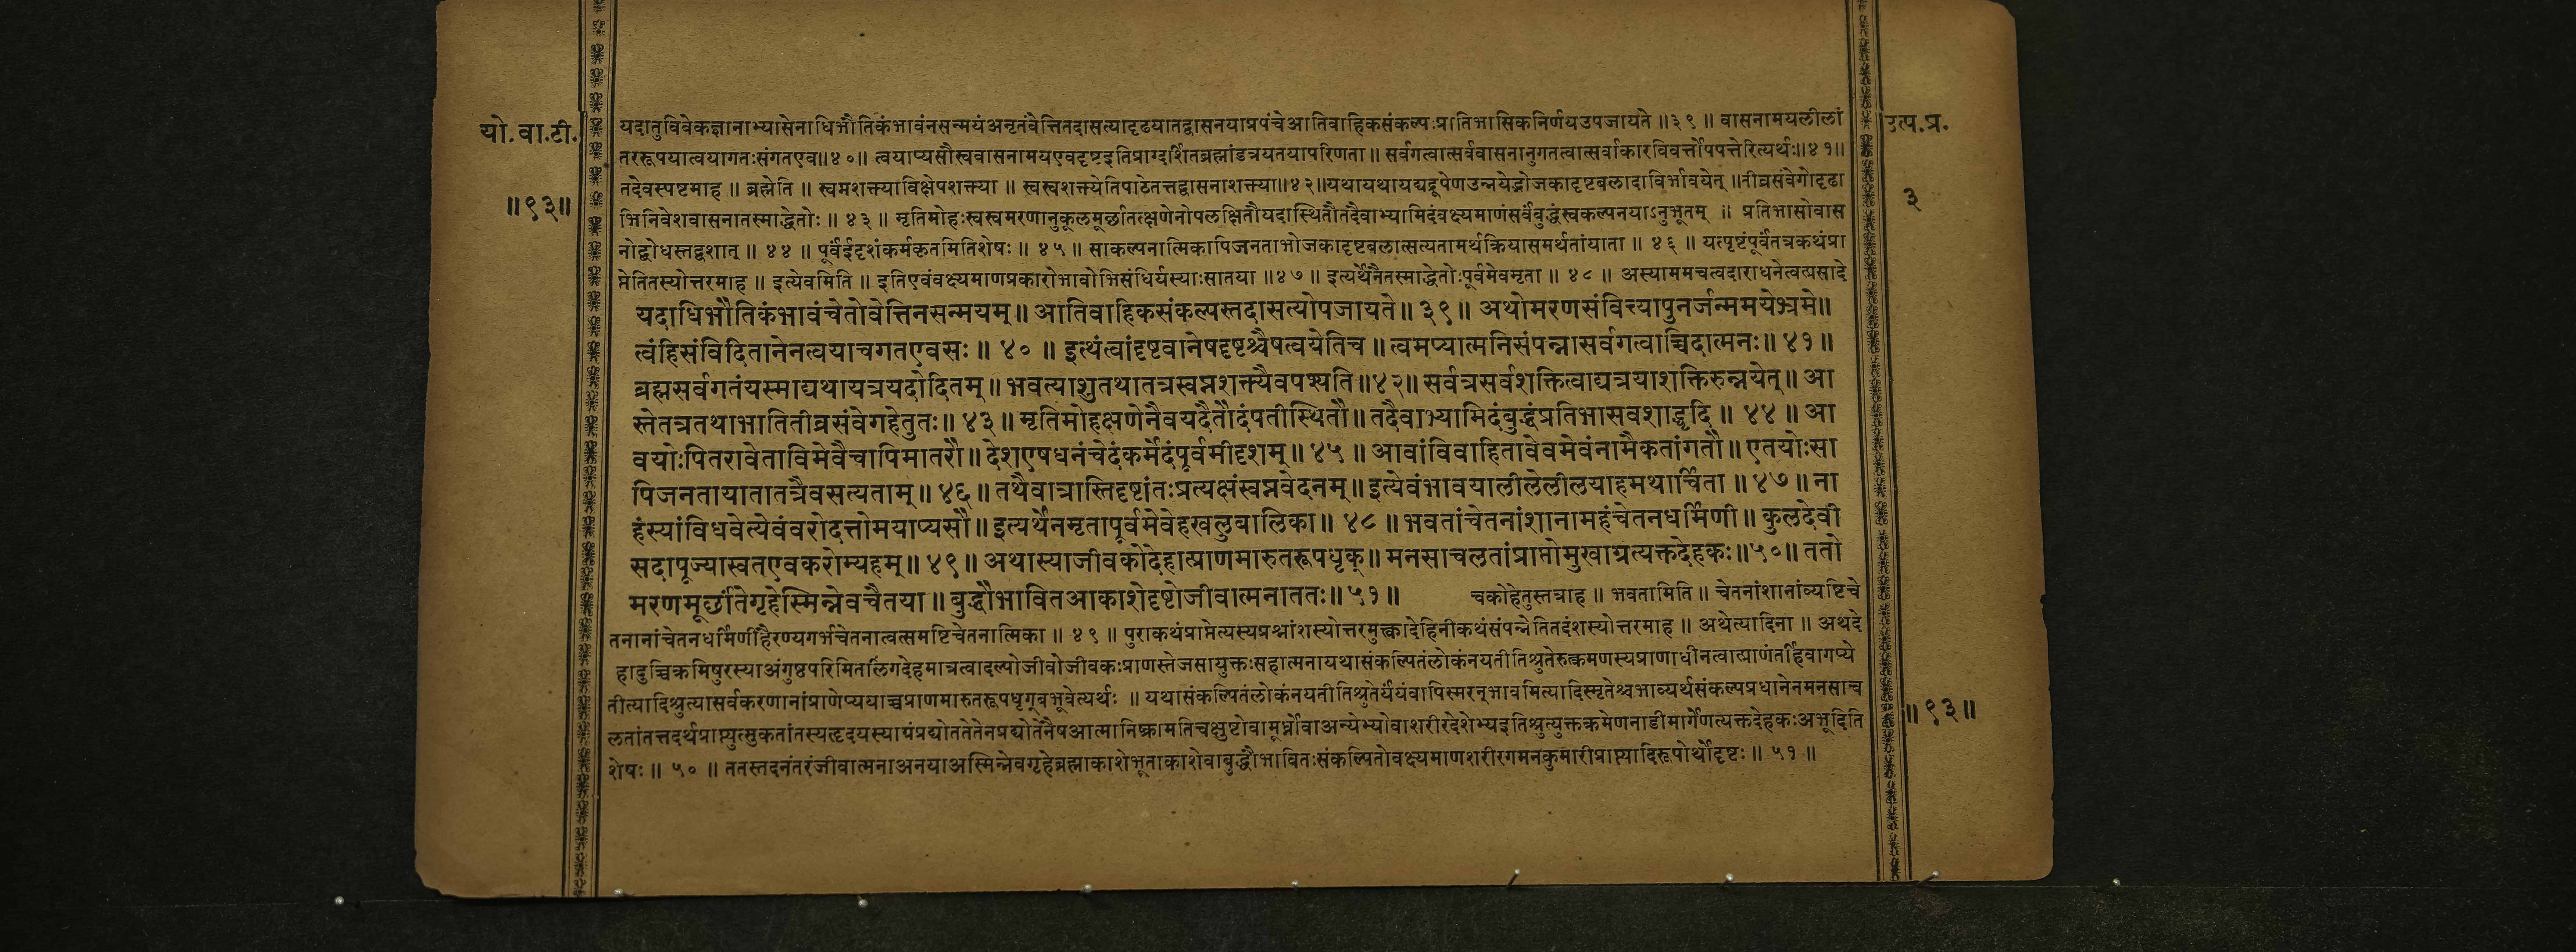 यो. वा. टी.
॥९३॥
यदातुविवेकज्ञानाभ्यासेनाधिभौतिकंभावंनसन्मयंअनृतंवेत्तितदासत्यादृढयातद्वासनयाप्रपंचेआतिवाहिकसंकल्पःप्रातिभासिकनिर्णयउपजायते ॥३९॥ वासनामयलीलां
तररूपयात्वयागतःसंगतएव॥४०॥ त्वयाप्यसौस्ववासनामयएवदृष्टइतिप्राग्दर्शितब्रह्मांडत्रयतयापरिणता ॥ सर्वगत्वात्सर्ववासनानुगतत्वात्सर्वाकारविवर्त्तोपपत्तेरित्यर्थः॥४१॥
तदेवस्पष्टमाह ॥ ब्रह्मेति ॥ स्वप्नशक्त्याविक्षेपशक्त्या ॥ स्वस्वशक्त्येतिपाठेतत्तद्वासनाशक्त्या॥४२॥यथायथायद्यद्रूपेणउन्नयेद्भोजकादृष्टबलादाविर्भावयेत् ॥तीव्रसंवेगोदृढा
भिनिवेशवासनातस्माद्धेतोः ॥ ४३ ॥ मृतिमोहःस्वस्वमरणानुकूलमूर्छातत्क्षणेनोपलक्षितौयदास्थितौतदैवाभ्यामिदंवक्ष्यमाणंसर्वंबुद्धंस्वकल्पनयाऽनुभूतम् ॥ प्रतिभासोवास
नोद्बोधस्तद्वशात् ॥ ४४ ॥ पूर्वंईदृशंकर्मकृतमितिशेषः ॥ ४५ ॥ साकल्पनात्मिकापिजनताभोजकादृष्टबलात्सत्यतामर्थक्रियासमर्थतांयाता ॥ ४६ ॥ यत्पृष्टंपूर्वंतत्रकथंप्रा
प्तेतितस्योत्तरमाह ॥ इत्येवमिति ॥ इतिएवंवक्ष्यमाणप्रकारोभावोभिसंधिर्यस्याःसातया ॥४७॥ इत्यर्थेनैतस्माद्धेतोःपूर्वमेवमृता ॥ ४८ ॥ अस्याममचत्वदाराधनेत्वत्प्रसादे
यदाधिभौतिकंभावंचेतोवेत्तिनसन्मयम्॥ आतिवाहिकसंकल्पस्तदासत्योपजायते॥ ३९॥ अथोमरणसंवित्त्यापुनर्जन्ममयेभ्रमे॥
त्वंहिसंविदितानेनत्वयाचगतएवसः ॥ ४० ॥ इत्थंत्वांदृष्टवानेषदृष्टश्चैषत्वयेतिच॥ त्वमप्यात्मनिसंपन्नासर्वगत्वाच्चिदात्मनः॥ ४१॥
ब्रह्मसर्वगतंयस्माद्यथायत्रयदोदितम्॥ भवत्याशुतथातत्रस्वप्नशक्त्यैवपश्यति॥४२॥ सर्वत्रसर्वशक्तित्वाद्यत्रयाशक्तिरुन्नयेत्॥ आ
स्तेतत्रतथाभातितीव्रसंवेगहेतुतः॥ ४३॥ मृतिमोहक्षणेनैवयदैतौदंपतीस्थितौ॥ तदैवाभ्यामिदंबुद्धंप्रतिभासवशाद्धृदि॥ ४४ ॥ आ
वयोःपितरावेताविमेवैचापिमातरौ॥ देशएषधनंचेदंकर्मेदंपूर्वमीदृशम्॥ ४५॥ आवांविवाहितावेवमेवंनामैकतांगतौ॥ एतयोःसा
पिजनतायातातत्रैवसत्यताम्॥ ४६॥ तथैवात्रास्तिदृष्टांतःप्रत्यक्षंस्वप्नवेदनम्॥इत्येवंभावयालीलेलीलयाहमथार्चिता॥ ४७॥ ना
हंस्यांविधवेत्येवंवरोदत्तोमयाप्यसौ॥इत्यर्थेनमृतापूर्वमेवेहखलुबालिका॥ ४८॥ भवतांचेतनांशानामहंचेतनधर्मिणी॥ कुलदेवी
सदापूज्यास्वतएवकरोम्यहम्॥ ४९॥ अथास्याजीवकोदेहात्प्राणमारुतरूपधृक्॥ मनसाचलतांप्राप्तोमुखाग्रत्यक्तदेहकः॥५०॥ ततो
मरणमूर्छांतेगृहेस्मिन्नेवचैतया॥ बुद्धौभावितआकाशेदृष्टोजीवात्मनाततः॥ ५१ ॥ चकोहेतुस्तत्राह ॥ भवतामिति ॥ चेतनांशानांव्यष्टिचे
तनानांचेतनधर्मिणीहैरण्यगर्भचेतनात्वत्समष्टिचेतनात्मिका ॥ ४९ ॥ पुराकथंप्राप्तेत्यस्यप्रश्नांशस्योत्तरमुक्त्वादेहिनीकथंसंपन्नेतितदंशस्योत्तरमाह ॥ अथेत्यादिना ॥ अथदे
हादुच्चिक्रमिषुरस्याअंगुष्ठपरिमितलिंगदेहमात्रत्वादल्पोजीवोजीवकःप्राणस्तेजसायुक्तःसहात्मनायथासंकल्पितंलोकंनयतीतिश्रुतेरुत्क्रमणस्यप्राणाधीनत्वात्प्राणंतर्हिवागप्ये
तीत्यादिश्रुत्यासर्वकरणानांप्राणेप्ययाच्चप्राणमारुतरूपधृग्बभूवेत्यर्थः ॥ यथासंकल्पितंलोकंनयतीतिश्रुतेर्यंयंवापिस्मरन्भावमित्यादिस्मृतेश्चभाव्यर्थसंकल्पप्रधानेनमनसाच
लतांतत्तदर्थप्राप्त्युत्सुकतांतस्यहृदयस्यायंप्रद्योततेतेनप्रद्योतेनैषआत्मानिष्क्रामतिचक्षुष्टोवामूर्ध्नोवाअन्येभ्योवाशरीरदेशेभ्यइतिश्रुत्युक्तक्रमेणनाडीमार्गेणत्यक्तदेहकःअभूदिति
शेषः॥ ५० ॥ ततस्तदनंतरंजीवात्मनाअनयाअस्मिन्नेवगृहेब्रह्माकाशेभूताकाशेवाबुद्धौभावितःसंकल्पितोवक्ष्यमाणशरीरगमनकुमारीप्राप्त्यादिरूपोर्थोदृष्टः ॥ ५१ ॥
उत्प.प्र.
३
॥९३॥